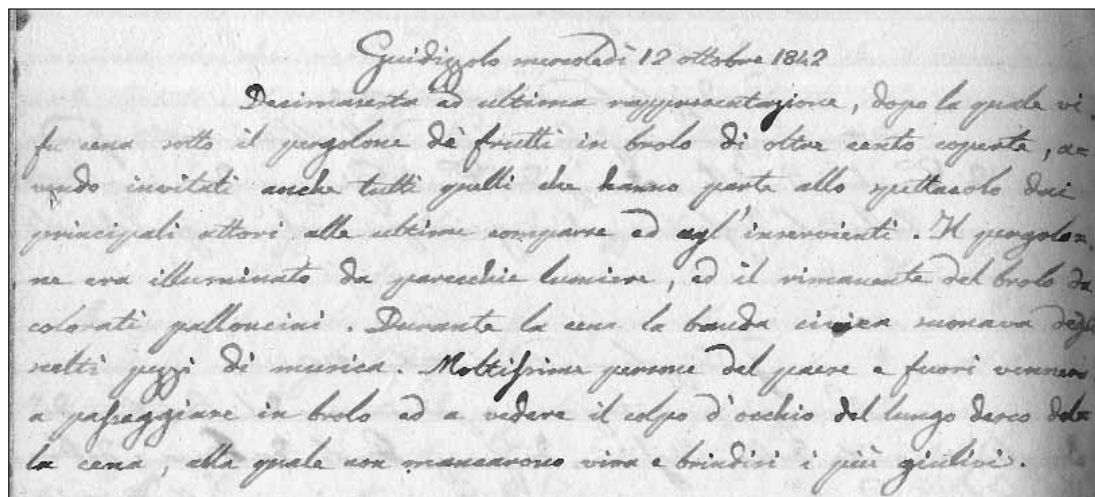 Guidizzolo mercoledì 12 ottobre 1842
Decimasesta ed ultima rappresentazione, dopo la quale vi
fu cena sotto il pergolone de' frutti in brolo di oltre cento coperte, a=
vendo invitati anche tutti quelli che hanno parte allo spettacolo dai
principali attori alle ultime comparse ed agl' inservienti. Il pergolo=
ne era illuminato da parecchie lumiere, ed il rimanente del brolo da
colorati palloncini. Durante la cena la banda civica suonava degli
scelti pezzi di musica. Moltissime persone del paese e fuori vennero
a passeggiare in brolo ed a vedere il colpo d'occhio del lungo desco del=
la cena, alla quale non mancarono viva e brindisi i più giulivi.